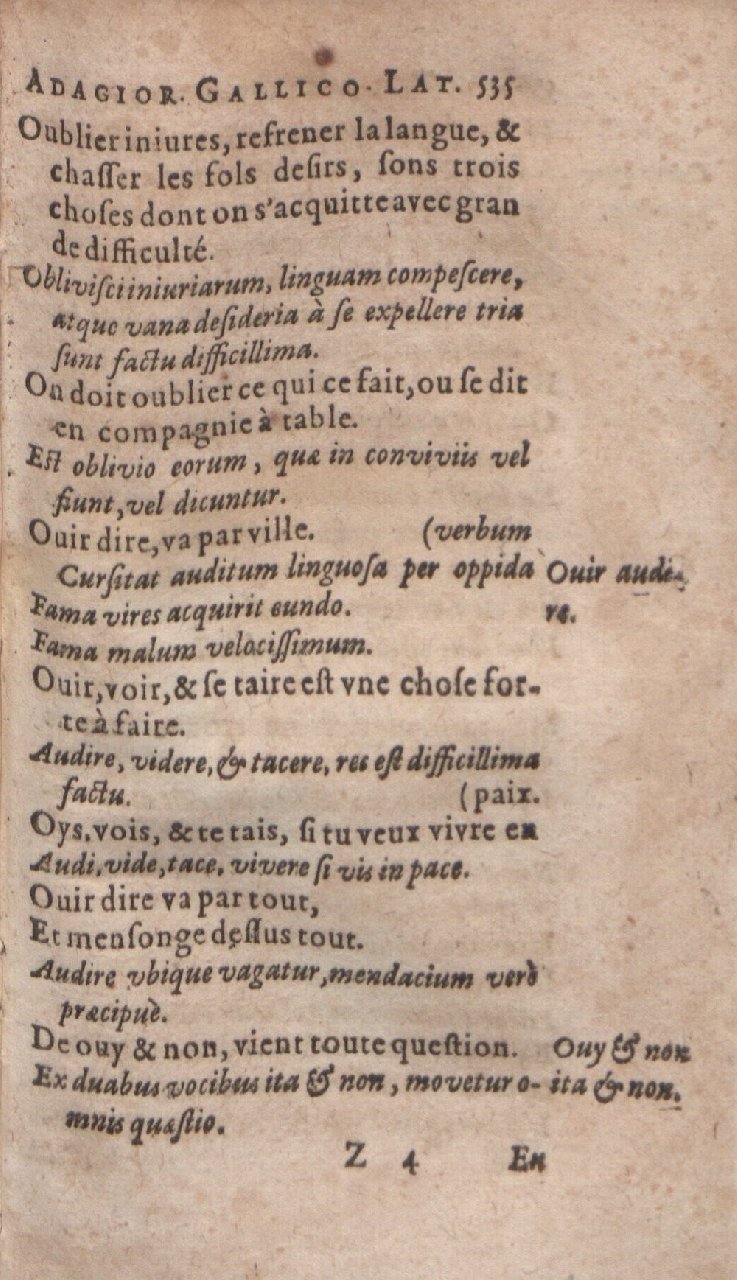 ADAGIOR. GALLICO. LAT. 535
Oublier iniures, refrener la langue, &
chaſſer les fols deſirs, ſons trois
choſes dont on s'acquitte avec gran
de difficulté.
Obliviſci iniuriarum, linguam compeſcere,
atque vana deſideria à ſe expellere tria
ſunt factu difficillima.
On doit oublier ce qui ce fait, ou ſe dit
en compagnie à table.
Eſt oblivio eorum, quæ in conviviis vel
fiunt, vel dicuntur.
Ouir dire, va par ville. (verbum
Curſitat auditum linguoſa per oppida
Ouir audi-
re.
Fama vires acquirit eundo.
Fama malum velociſſimum.
Ouir, voir, & ſe taire eſt vne choſe for-
te à faire.
Audire, videre, & tacere, res eſt difficillima
factu. (paix.
Oys, vois, & te tais, ſi tu veux vivre en
Audi, vide, tace, vivere ſi vis in pace.
Ouir dire va par tout,
Et menſonge deſſus tout.
Audire vbique vagatur, mendacium verò
præcipuè.
De ouy & non, vient toute queſtion.
Ouy & non
ita & non.
Ex duabus vocibus ita & non, movetur o-
mnis quæſtio.
Z 4 En